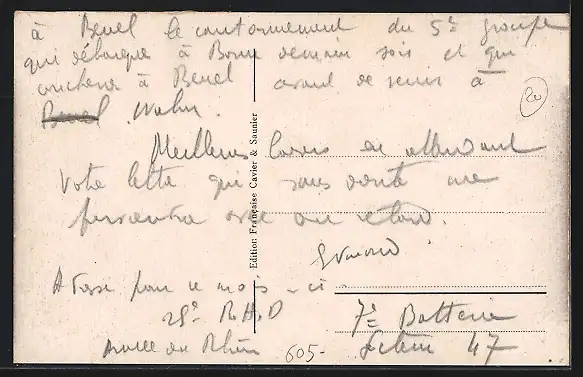 à Beuel le cantonnement du 5e groupe
qui débarque à Bonn demain soir et qui
couchera à Beuel avant de venir à
Beuel Wahn.
Meilleurs baisers en attendant
votre lettre qui sans doute me
parviendra avec du retard.
Edition Française Cavier & Saunier
Adresse pour ce mois-ci
25e R.A.D 7e Batterie
Armée du Rhin Secteur 47
605-
20